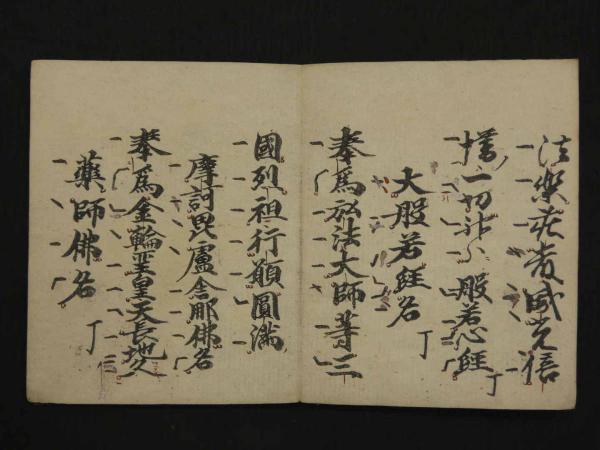 法樂莊嚴威光倍
増一切神分般若心経 丁
大般若経名 丁
奉為弘法大師等三
國列祖行願圓満
摩訶毘盧舎那佛名
奉為金輪聖皇天長地久
藥師佛名 丁